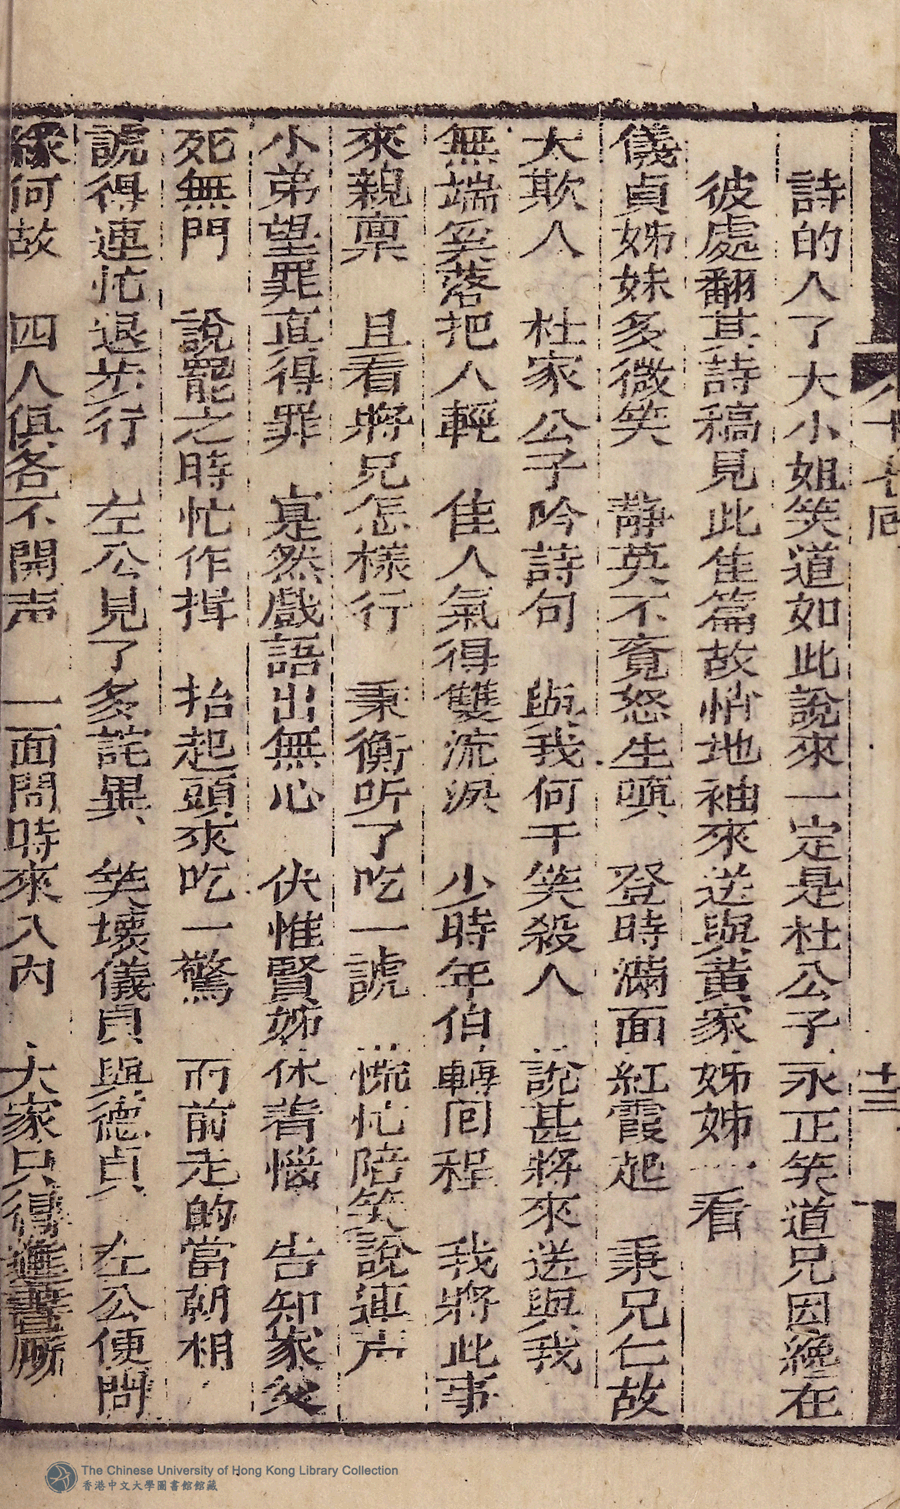 詩的人了大小姐笑道如此說來一定是杜公子永正笑道兄因纔在
彼處翻其詩稿見此隹篇故悄地袖來送與黄家姊姊一看
儀貞姊妹多微笑 靜英不覔怒生嗔 登時滿面紅霞起 秉兄仁故
太欺人 杜家公子吟詩句 與我何干笑殺人 說甚將來送與我
無端奚落把人輕 隹人氣得雙流淚 少時年伯轉囘程 我將此事
來親禀 且看將兄怎樣行 秉衡听了吃一諕 慌忙陪笑說連声
小弟望罪直得罪 寔然戲語出無心 伏惟賢姊休着惱 告知家父
死無門 說罷之時忙作揖 抬起頭來吃一驚 而前走的當朝相
諕得連忙退步行 左公見了多詫異 笑壞儀貞與德貞 左公便問
緣何故 四人俱各不開声 一面問時來入內 大家只得進書廂
十三
The Chinese University of Hong Kong Library Collection
香港中文大學圖書館館藏